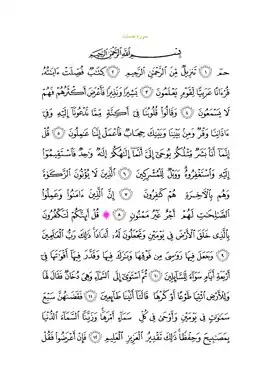 سورة فصلت
بِسْمِ ٱللَّهِ ٱلرَّحْمَٰنِ ٱلرَّحِيمِ
حمٓ ١ تَنزِيلٌ مِّنَ ٱلرَّحْمَٰنِ ٱلرَّحِيمِ ٢ كِتَٰبٌ فُصِّلَتْ ءَايَٰتُهُۥ
قُرْءَانًا عَرَبِيًّا لِّقَوْمٍ يَعْلَمُونَ ٣ بَشِيرًا وَنَذِيرًا فَأَعْرَضَ أَكْثَرُهُمْ فَهُمْ
لَا يَسْمَعُونَ ٤ وَقَالُوا۟ قُلُوبُنَا فِىٓ أَكِنَّةٍ مِّمَّا تَدْعُونَآ إِلَيْهِ وَفِىٓ
ءَاذَانِنَا وَقْرٌ وَمِنۢ بَيْنِنَا وَبَيْنِكَ حِجَابٌ فَٱعْمَلْ إِنَّنَا عَٰمِلُونَ ٥ قُلْ
إِنَّمَآ أَنَا۠ بَشَرٌ مِّثْلُكُمْ يُوحَىٰٓ إِلَىَّ أَنَّمَآ إِلَٰهُكُمْ إِلَٰهٌ وَٰحِدٌ فَٱسْتَقِيمُوٓا۟
إِلَيْهِ وَٱسْتَغْفِرُوهُ وَوَيْلٌ لِّلْمُشْرِكِينَ ٦ ٱلَّذِينَ لَا يُؤْتُونَ ٱلزَّكَوٰةَ
وَهُم بِٱلْءَاخِرَةِ هُمْ كَٰفِرُونَ ٧ إِنَّ ٱلَّذِينَ ءَامَنُوا۟ وَعَمِلُوا۟
ٱلصَّٰلِحَٰتِ لَهُمْ أَجْرٌ غَيْرُ مَمْنُونٍ ٨ ۞ قُلْ أَئِنَّكُمْ لَتَكْفُرُونَ
بِٱلَّذِى خَلَقَ ٱلْأَرْضَ فِى يَوْمَيْنِ وَتَجْعَلُونَ لَهُۥٓ أَندَادًا ذَٰلِكَ رَبُّ ٱلْعَٰلَمِينَ
٩ وَجَعَلَ فِيهَا رَوَٰسِىَ مِن فَوْقِهَا وَبَٰرَكَ فِيهَا وَقَدَّرَ فِيهَآ أَقْوَٰتَهَا فِىٓ
أَرْبَعَةِ أَيَّامٍ سَوَآءً لِّلسَّآئِلِينَ ١٠ ثُمَّ ٱسْتَوَىٰٓ إِلَى ٱلسَّمَآءِ وَهِىَ دُخَانٌ فَقَالَ لَهَا
وَلِلْأَرْضِ ٱئْتِيَا طَوْعًا أَوْ كَرْهًا قَالَتَآ أَتَيْنَا طَآئِعِينَ ١١ فَقَضَىٰهُنَّ سَبْعَ
سَمَٰوَاتٍ فِى يَوْمَيْنِ وَأَوْحَىٰ فِى كُلِّ سَمَآءٍ أَمْرَهَا وَزَيَّنَّا ٱلسَّمَآءَ ٱلدُّنْيَا
بِمَصَٰبِيحَ وَحِفْظًا ذَٰلِكَ تَقْدِيرُ ٱلْعَزِيزِ ٱلْعَلِيمِ ١٢ فَإِنْ أَعْرَضُوا۟ فَقُلْ